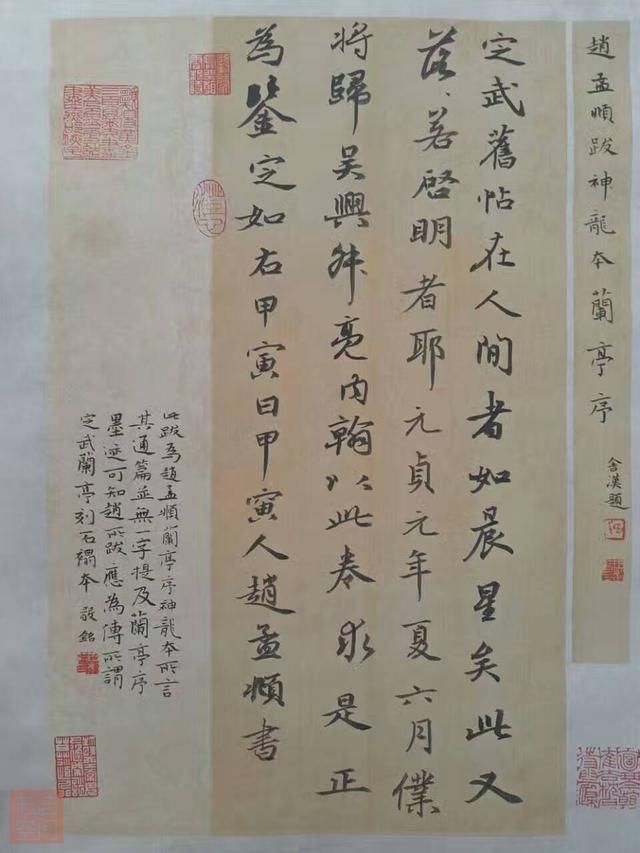 趙孟頫跋神龍本蘭亭序
漢題
定武舊帖在人間者如晨星矣此又
落〻若啓明者耶元貞元年夏六月僕
將歸吳興叔亮内翰以此卷求是正
為鑒定如右甲寅日甲寅人趙孟頫書
此跋為趙孟頫蘭亭序神龍本所言
其通篇並無一字提及蘭亭序
墨迹可知趙所跋應為傳所謂
定武蘭亭刻石搨本 敬銘